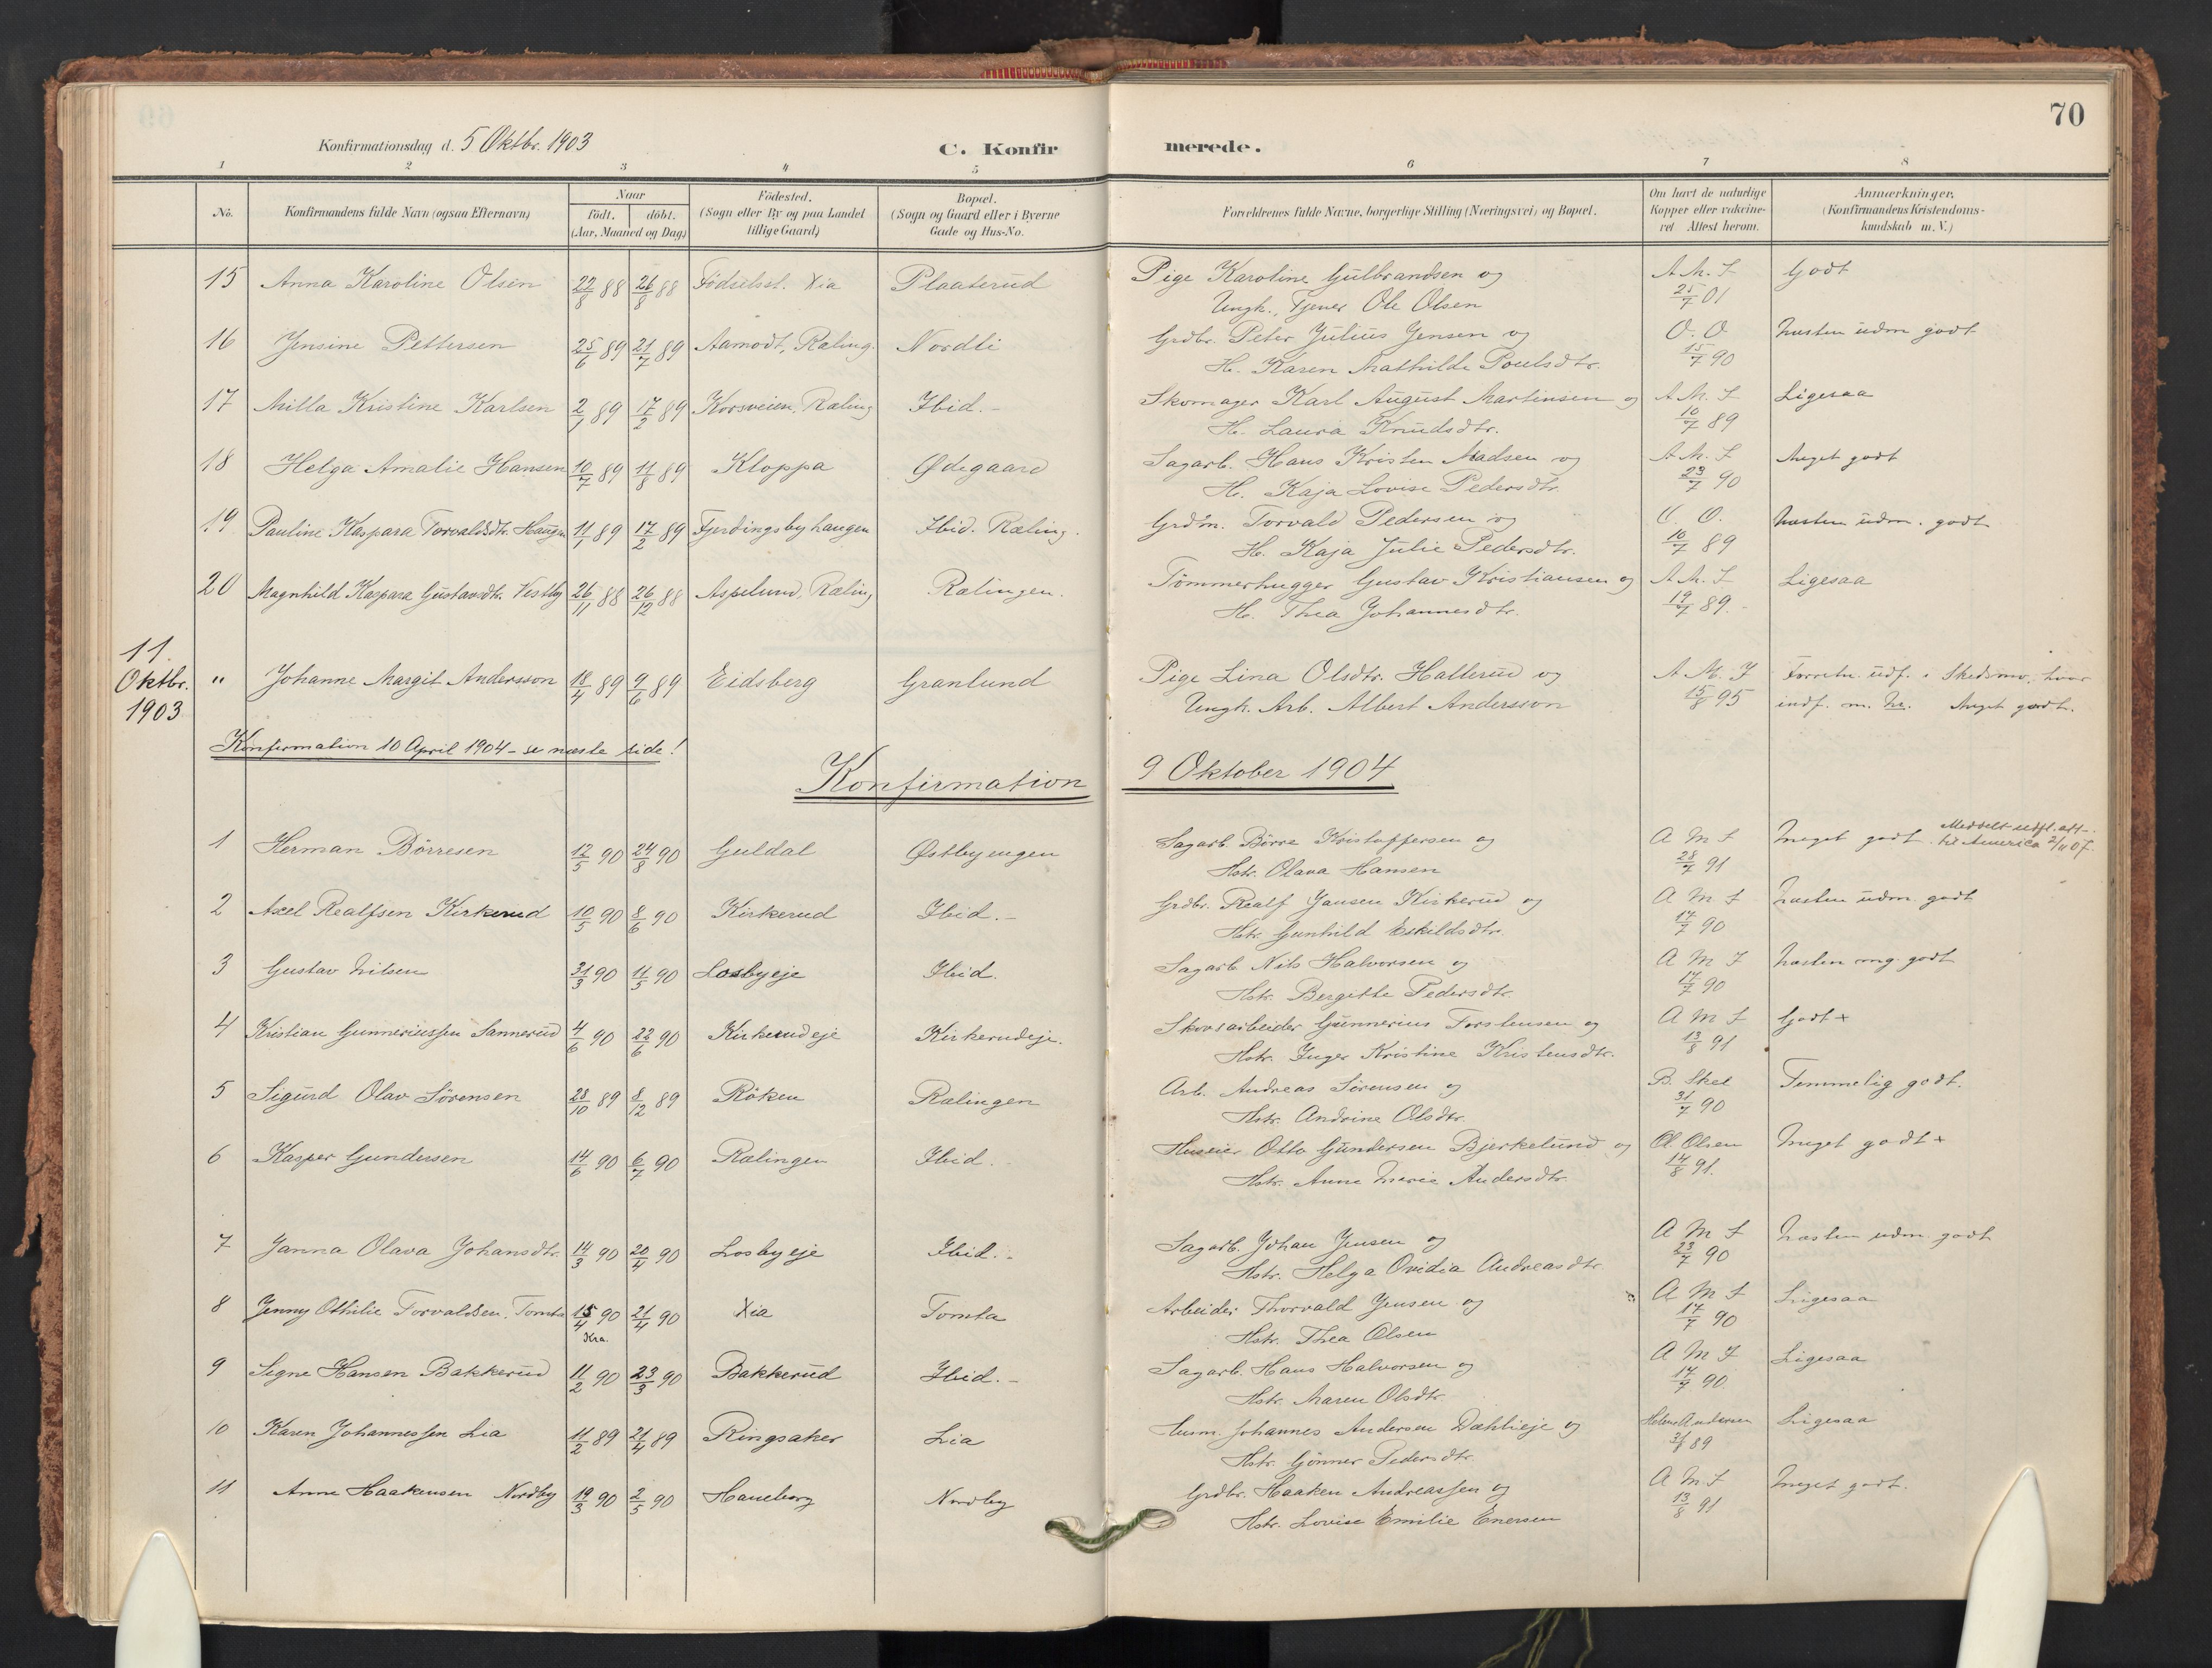 70
Konfirmationsdag d. 5 Oktbr. 1903
C. Konfirmerede.
1 2 3 4 5 6 7 8
No.
Konfirmandens fulde Navn (ogsaa Efternavn)
Naar
födt. döbt.
(Aar, Maaned og Dag)
Födested.
(Sogn eller By og paa Landet
tillige Gaard)
Bopæl.
(Sogn og Gaard eller i Byerne
Gade og Hus-No.
Forældrenes fulde Navne, borgerlige Stilling (Næringsvei) og Bopæl.
Om havt de naturlige
Kopper eller vakcine-
ret Attest herom.
Anmærkninger.
(Konfirmandens Kristendoms-
kundskab m. V.)
15 Anna Karoline Olsen 22/8 88 26/8 88 Födselsst. Xia Plaaterud Pige Karoline Gulbrandsen og A. M. I Godt
Ungk., Tjener Ole Olsen 25/7 01
16 Jensine Pettersen 25/6 89 21/7 89 Aamodt, Räling. Nordli Grdbr. Peter Julius Jensen og O. O. næsten udm godt
H. Karen Mathilde Poulsdtr. 15/7 90
17 Milla Kristine Karlsen 2/1 89 17/2 89 Korsveien, Räling Ibid.- Skomager Karl August Martinsen og A. M. I Ligesaa
H. Laura Knudsdtr. 10/7 89
18 Helga Amalie Hansen 10/7 89 11/8 89 Kloppa Ødegaard Sagarb. Hans Kristen Madsen og A. M. I Meget godt
H. Kaja Lovise Pedersdtr. 23/7 90
19 Pauline Kaspara Torvaldsdtr. Haugen 11/1 89 17/2 89 Fjerdingsbyhaugen Ibid. Räling. Grdm. Torvald Pedersen og O. O. næsten udm. godt
H. Kaja Julie Pedersdtr. 10/7 89
20 Magnhild Kaspara Gustavsdtr. Vestby 26/11 88 26/12 88 Aspelund, Räling Rälingen. Tömmerhugger Gustav Kristiansen og A. M. I Ligesaa
H. Thea Johannesdtr. 19/7 89.
11.
Oktbr.
1903
" Johanne Margit Andersson 18/4 89 9/6 89 Eidsberg Granlund Pige Lina Olsdtr. Hallerud og A. M. I Forretn. udf. i Skedsmo, hvor
Ungk. Arb. Albert Andersson 15/8 95 indf. m. Nr. Meget godt.
Konfirmation 10 April 1904 - se næste side!
Konfirmation 9 Oktober 1904
1 Herman Börresen 12/5 90 24/8 90 Guldal Østbyengen Sagarb. Börre Kristoffersen og A M I meget godt. Meddelt udfl. att.
til America 2/11 07.
Hstr. Olava Hansen 28/7 91
2 Axel Realfsen Kirkerud 10/5 90 8/6 90 Kirkerud Ibid.- Grdbr. Realf Jansen Kirkerud og A M I næsten udm. godt
Hstr. Gunhild Eskildsdtr. 17/7 90
3 Gustav Nilsen 31/3 90 11/5 90 Losbyeje Ibid. Sagarb. Nils Halvorsen og A M I næsten mg. godt
Hstr. Bergitte Pedersdtr. 17/7 90
4 Kristian Gunneriussen Sannerud 4/6 90 22/6 90 Kirkerudeje Kirkerudeje. Skovsarbeider Gunnerius Torstensen og A M I Godt +
Hstr. Inger Kristine Kristensdtr. 13/8 91
5 Sigurd Olav Sörensen 28/10 89 8/12 89 Röken Rälingen Arb. Andreas Sörensen og B. Skel Temmelig godt.
Hstr. Andrine Olsdtr. 31/7 90
6 Kasper Gundersen 14/6 90 6/7 90 Rälingen Ibid. Huseier Otto Gundersen Bjerkelund og Ol. Olsen meget godt +
Hstr. Anne Marie Andersdtr. 14/8 91.
7 Janna Olava Johansdtr. 14/3 90 20/4 90 Losbyeje Ibid.- Sagarb. Johan Jensen og A M I næsten udm. godt
Hstr. Helga Ovidia Andreasdtr 23/7 90
8 Jenny Othilie Torvaldsen, Tomta 15/4 90 21/4 90 Xia Tomta Arbeider Thorvald Jensen og A M I Ligesaa
Kra.
Hstr. Thea Olsen 17/7 90
9 Signe Hansen Bakkerud 11/2 90 23/3 90 Bakkerud Ibid.- Sagarb. Hans Halvorsen og A M I Ligesaa
Hstr. Maren Olsdtr. 17/7 90.
10 Karen Johannessen Lia 11/2 89 21/4 89 Ringsaker Lia Husm. Johannes Andersen Dæhlieje og Helene Andersen Ligesaa
Hstr. Gönner Pedersdtr. 3/8 89
11 Anne Haakensen Nordby 19/3 90 2/5 90 Haneborg Nordby Grdbr. Haaken Andreassen og A M I Meget godt.
Hstr. Lovise Emilie Enersen 13/8 91